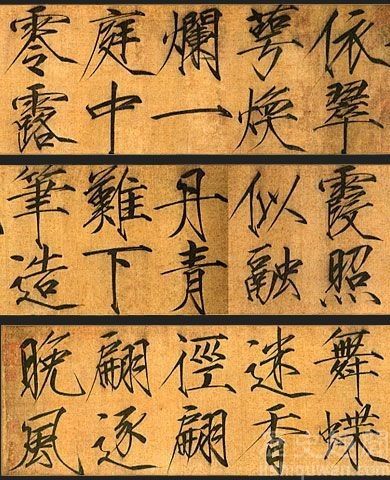 依翠
萼煥
爛一
庭中
零露
霞照
似融
丹青
難下
筆造
舞蝶
迷香
徑翩
翩逐
晚風